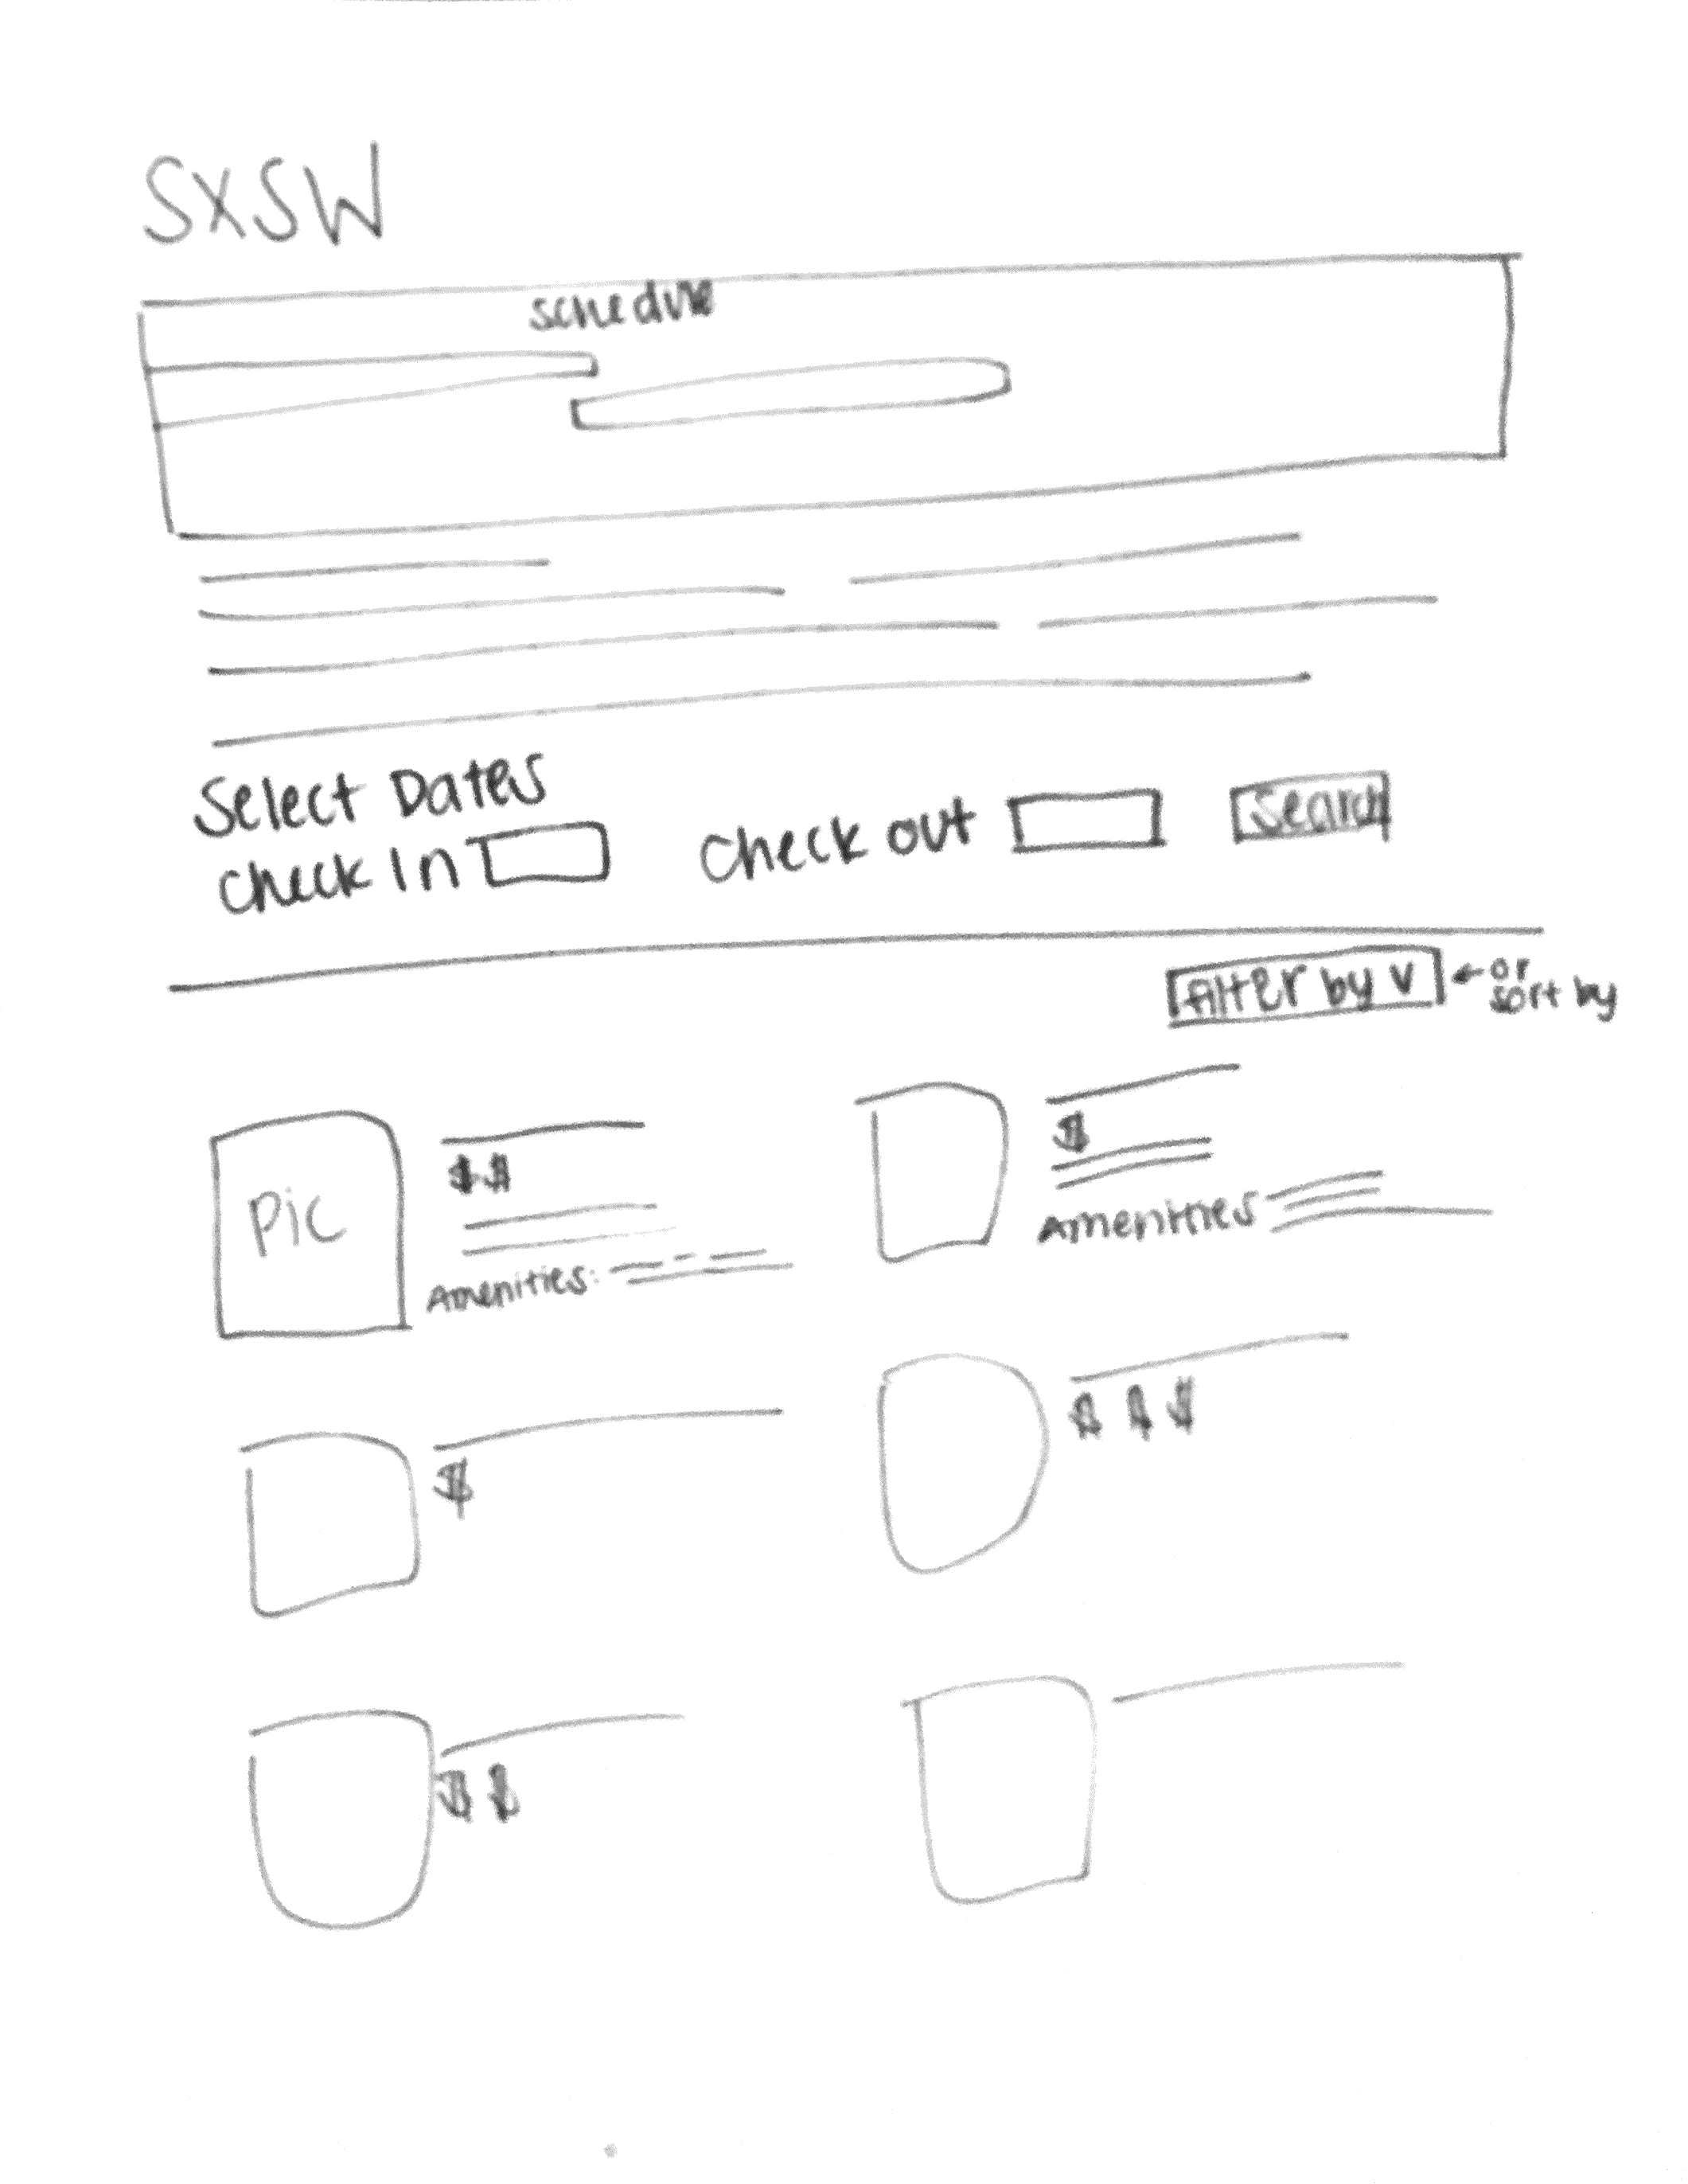 SXSW
schedule
Select Dates
Check In Check out Search
filter by v ← or
sort by
Pic
$$
Amenities:
$
Amenities
$
$ $ $
$ $